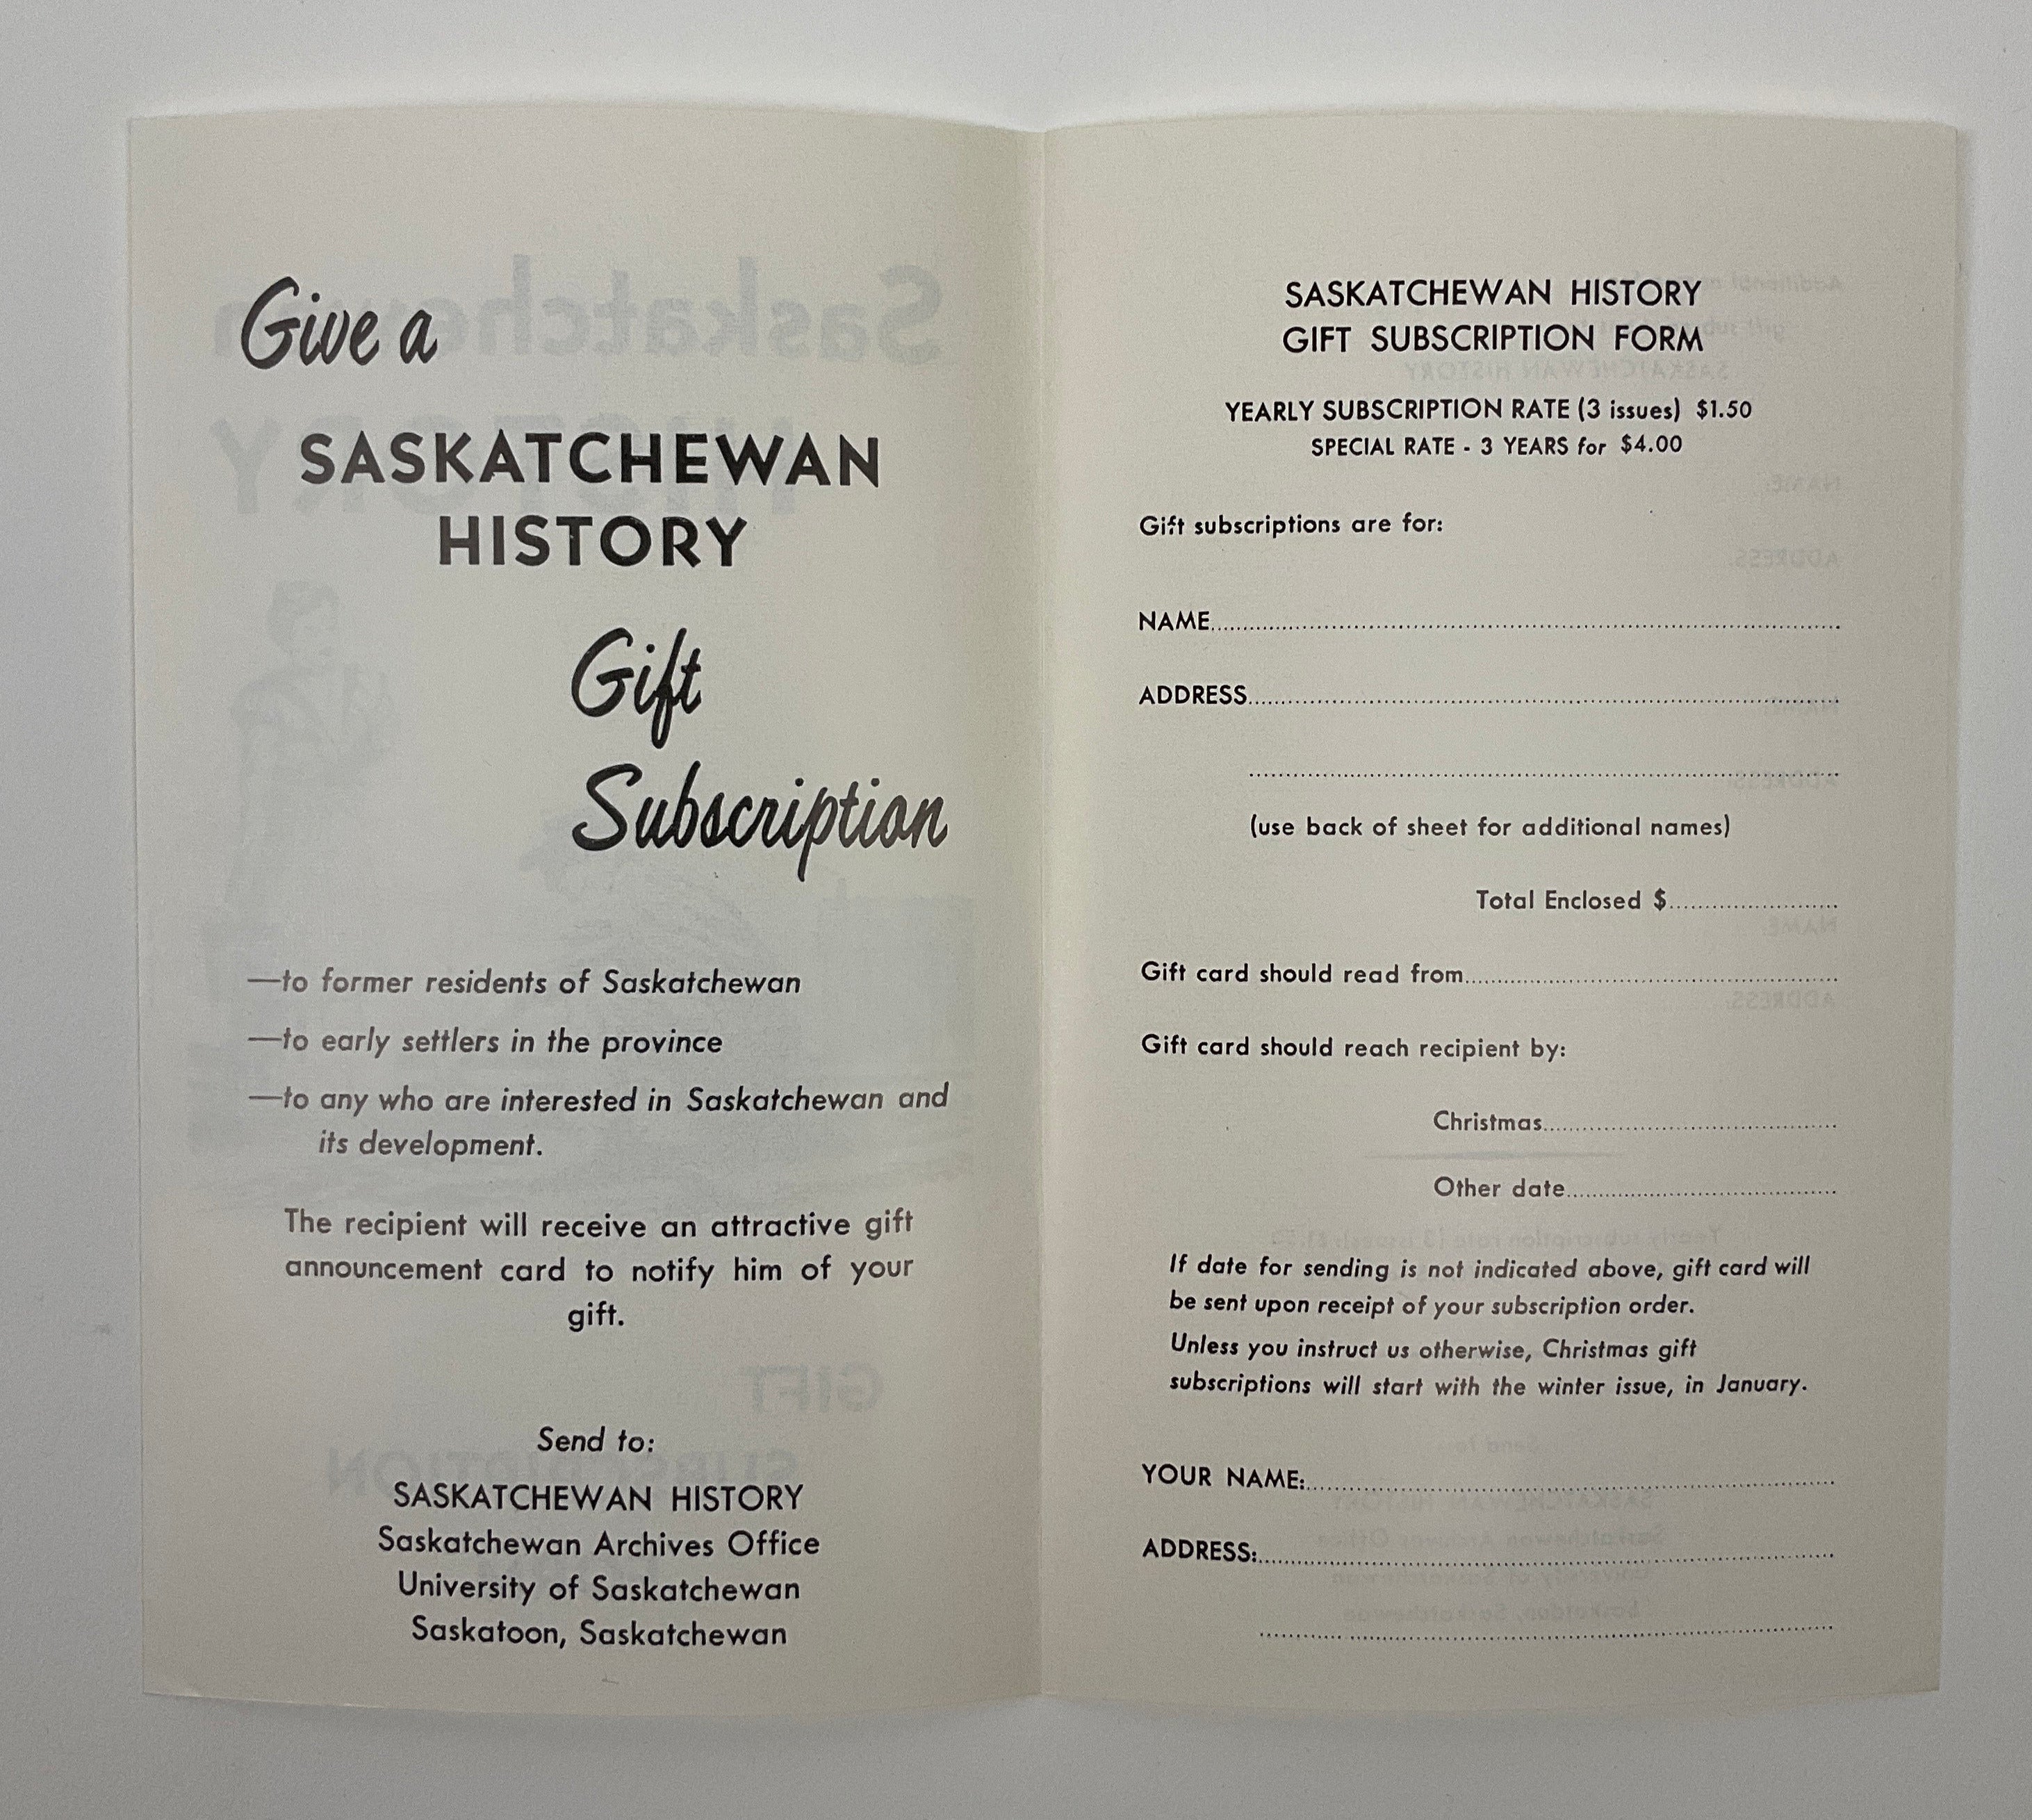 Give a
SASKATCHEWAN
HISTORY
Gift
Subscription
—to former residents of Saskatchewan
—to early settlers in the province
—to any who are interested in Saskatchewan and
its development.
The recipient will receive an attractive gift
announcement card to notify him of your
gift.
Send to:
SASKATCHEWAN HISTORY
Saskatchewan Archives Office
University of Saskatchewan
Saskatoon, Saskatchewan
SASKATCHEWAN HISTORY
GIFT SUBSCRIPTION FORM
YEARLY SUBSCRIPTION RATE (3 issues) $1.50
SPECIAL RATE - 3 YEARS for $4.00
Gift subscriptions are for:
NAME
ADDRESS
(use back of sheet for additional names)
Total Enclosed $
Gift card should read from
Gift card should reach recipient by:
Christmas
Other date
If date for sending is not indicated above, gift card will
be sent upon receipt of your subscription order.
Unless you instruct us otherwise, Christmas gift
subscriptions will start with the winter issue, in January.
YOUR NAME:
ADDRESS: